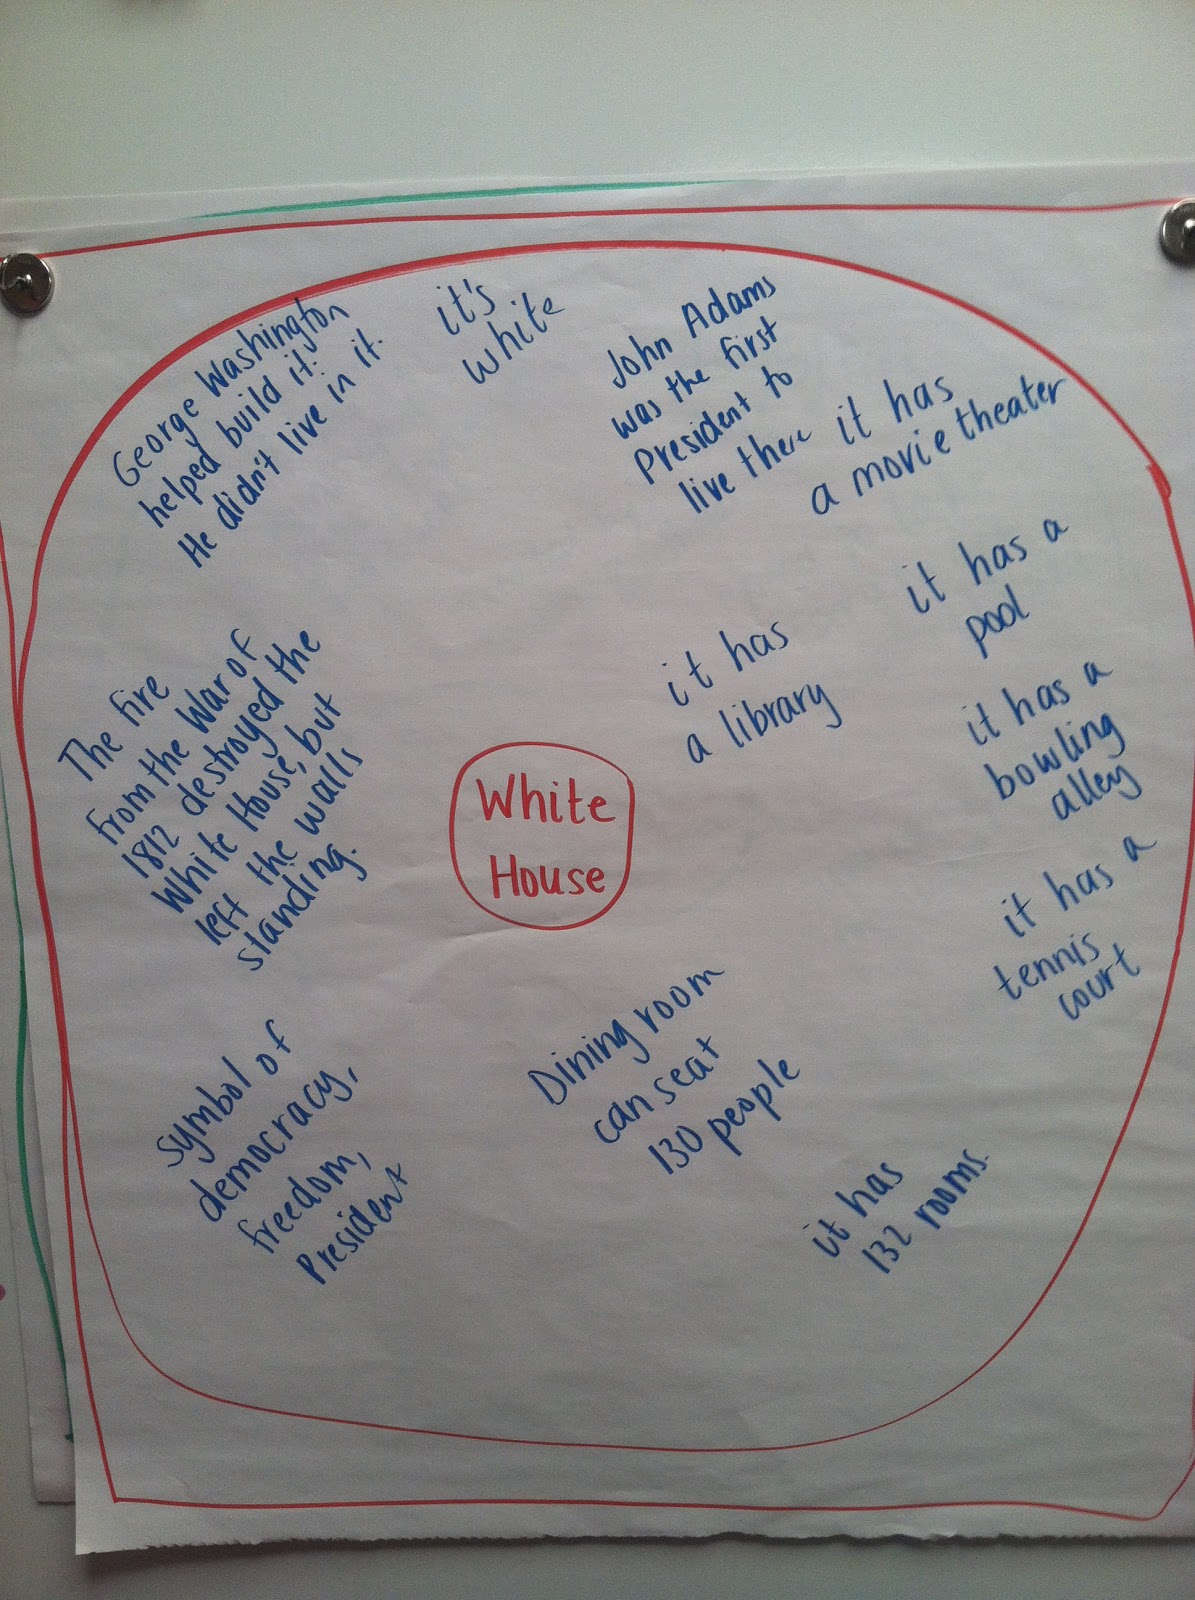 George Washington
helped build it.
He didn't live in it.
it's
white
John Adams
was the first
President to
live there
it has
a movie theater
it has a
pool
it has
a library
it has a
bowling
alley
The fire
from the War of
1812 destroyed the
White House, but
left the walls
standing.
White
House
it has a
tennis
court
Dining room
can seat
130 people
symbol of
democracy,
freedom,
President
it has
132 rooms.